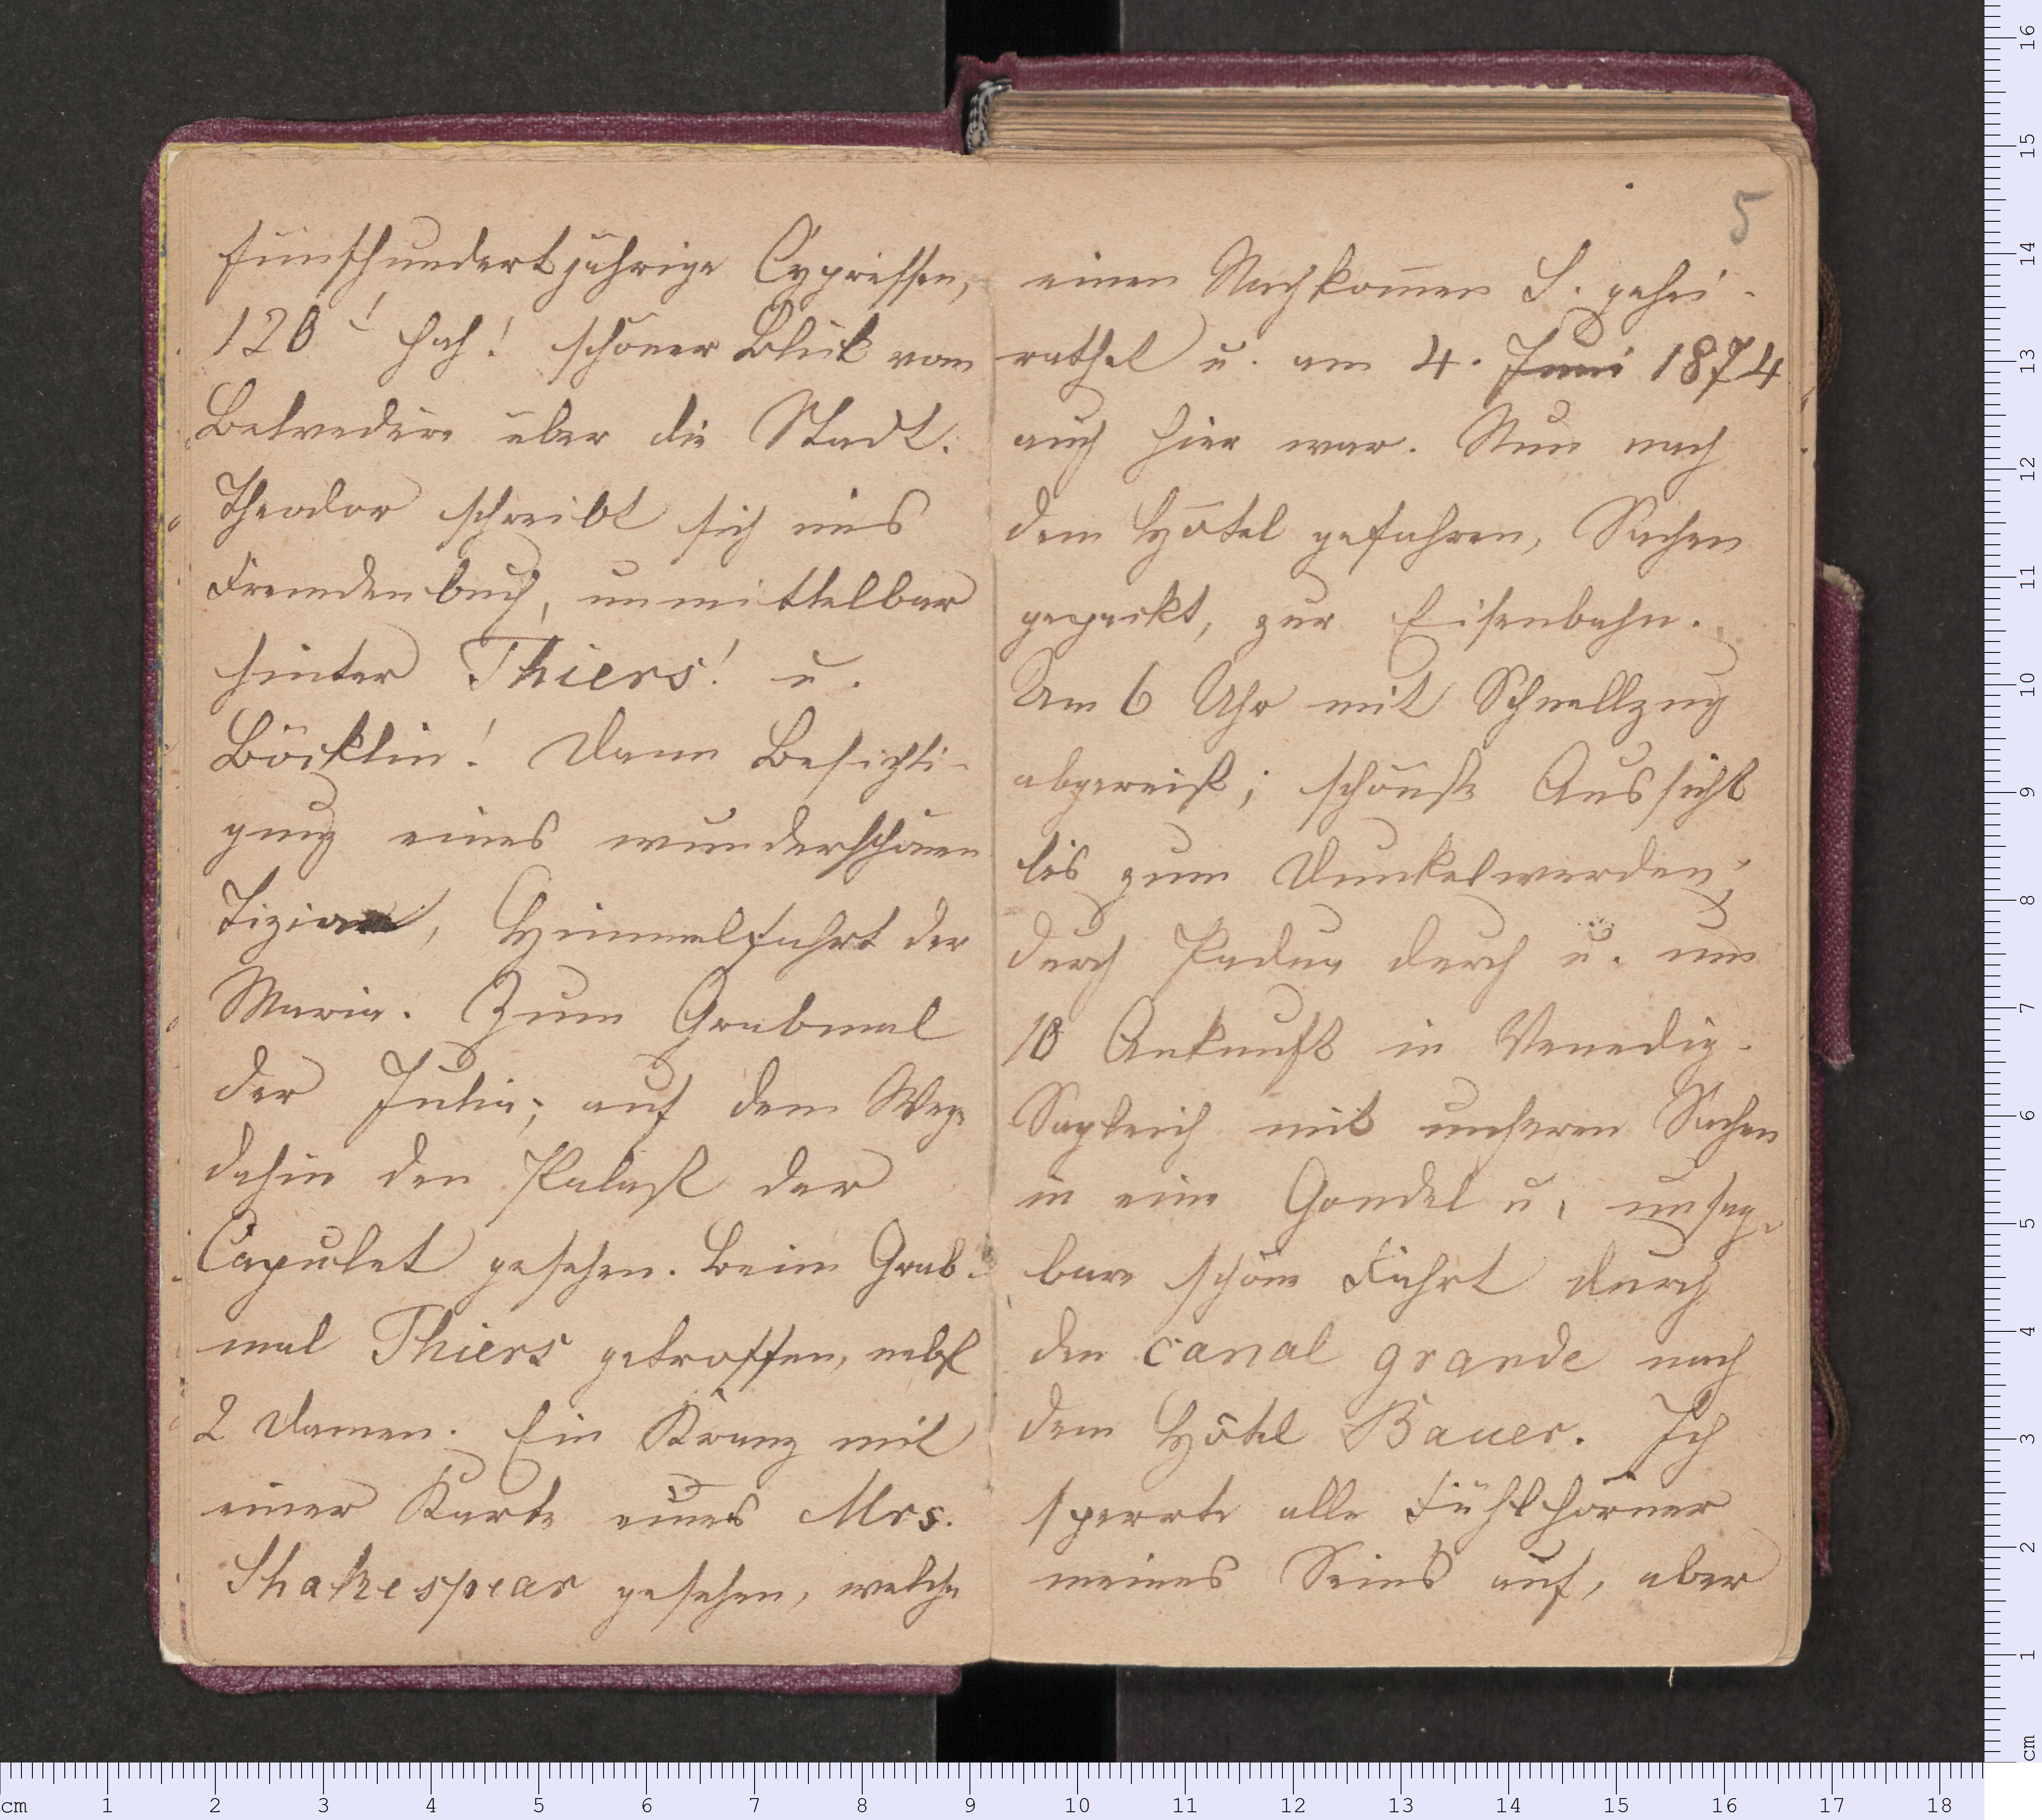 fünfhundertjährige Cypressen,
120' hoch! schöner Blick vom
Belvedere über die Stadt.
Theodor schreibt sich ins
Fremdenbuch, unmittelbar
hinter Thiers! u.
Böcklin! Dann Besichti-
gung eines wunderschönen
Tizian, Himmelfahrt der
Maria. Zum Grabmal
der Julia; auf dem Wege
dahin den Palast der
Capulet gesehen. Beim Grab-
mal Thiers getroffen, nebst
2 Damen. Ein Kranz mit
einer Karte eines Mrs.
Shakespear gesehen, welche
5
einen Nachkom̄en S. gehei-
rathet u. am 4. Juni 1874
auch hier war. Nun nach
dem Hôtel gefahren, Sachen
gepackt, zur Eisenbahn.
Um 6 Uhr mit Schnellzug
abgereist; schönste Aussicht
bis zum Dunkelwerden;
durch Padua durch u. um
10 Ankunft in Venedig.
Sogleich mit unseren Sachen
in eine Gondel u. unsag-
bare schöne Fahrt durch
den canal grande nach
dem Hôtel Bauer. Ich
sperrte alle Fühlhörner
meines Seins auf, aber